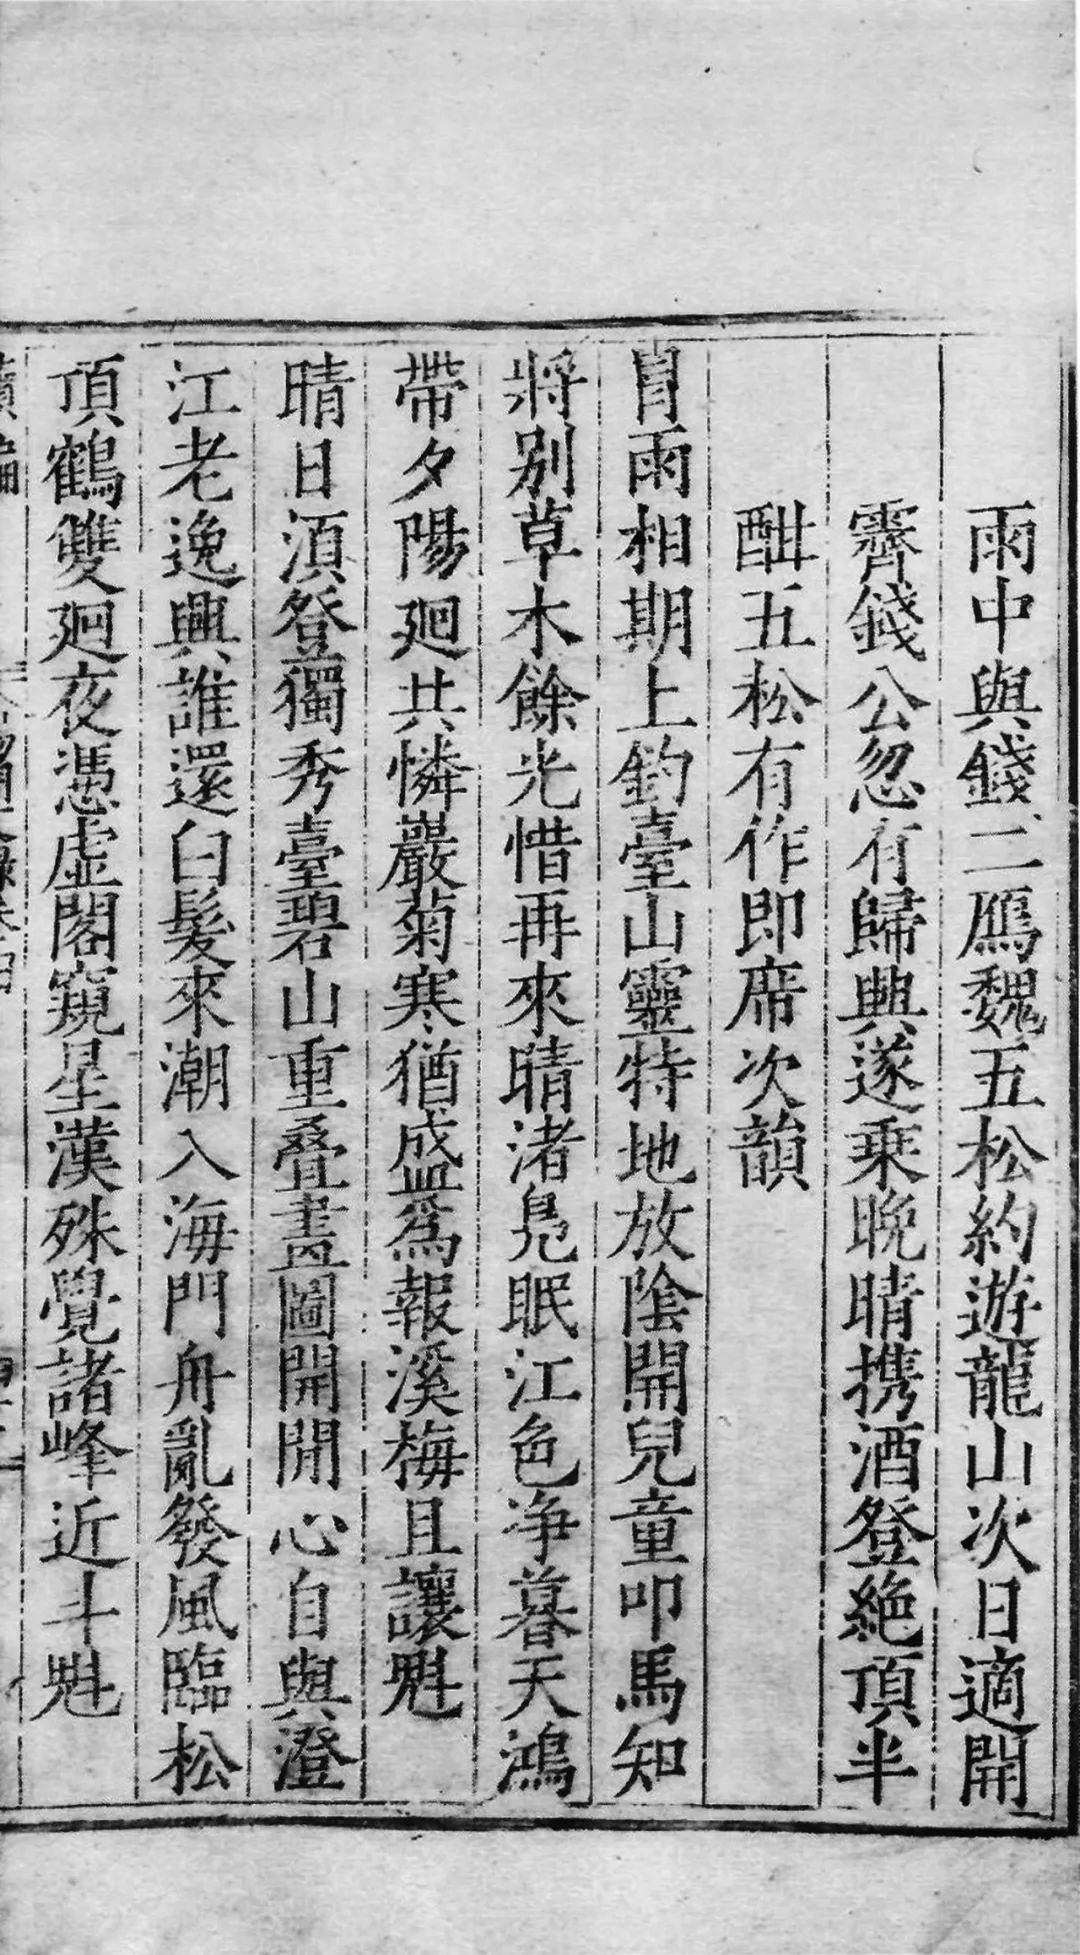 雨中與錢二鴈魏五松約遊龍山次日適開
霽錢公忽有歸興遂乗晚晴携酒登絶頂半
酣五松有作即席次韻
冒雨相期上釣臺山靈特地放陰開兒童叩馬知
將别草木餘光惜再來晴渚鳬眠江色净暮天鴻
帶夕陽廻共憐巖菊寒猶盛爲報溪梅且讓魁
晴日湏登獨秀臺碧山重叠畫圖開閒心自與澄
江老逸興誰還白髪來潮入海門舟亂發風臨松
頂鶴雙廻夜憑虛閣窺星漢殊覺諸峰近斗魁